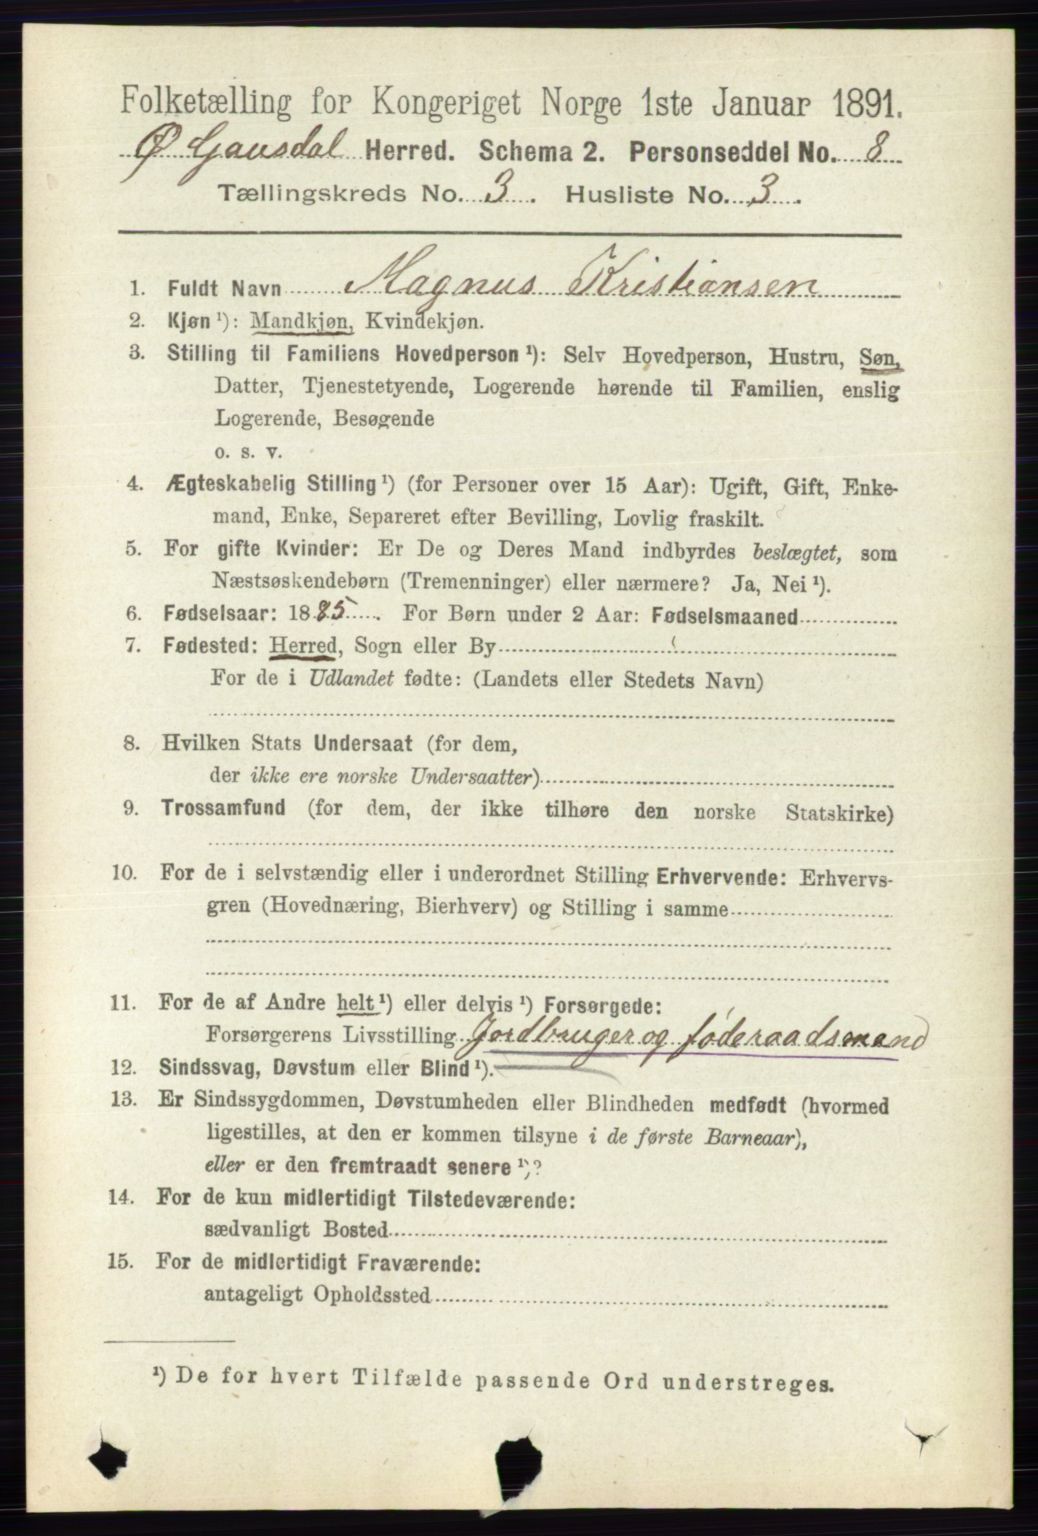 Folketælling for Kongeriget Norge 1ste Januar 1891.
Ø Gausdal Herred. Schema 2. Personseddel No. 8
Tællingskreds No. 3. Husliste No. 3.
1. Fuldt Navn Magnus Kristiansen
2. Kjøn ¹): Mandkjøn, Kvindekjøn.
3. Stilling til Familiens Hovedperson ¹): Selv Hovedperson, Hustru, Søn,
Datter, Tjenestetyende, Logerende hørende til Familien, enslig
Logerende, Besøgende
o. s. v.
4. Ægteskabelig Stilling ¹) (for Personer over 15 Aar): Ugift, Gift, Enke-
mand, Enke, Separeret efter Bevilling, Lovlig fraskilt.
5. For gifte Kvinder: Er De og Deres Mand indbyrdes beslægtet, som
Næstsøskendebørn (Tremenninger) eller nærmere? Ja, Nei ¹).
6. Fødselsaar: 1885. For Børn under 2 Aar: Fødselsmaaned
7. Fødested: Herred, Sogn eller By
For de i Udlandet fødte: (Landets eller Stedets Navn)
8. Hvilken Stats Undersaat (for dem,
der ikke ere norske Undersaatter)
9. Trossamfund (for dem, der ikke tilhøre den norske Statskirke)
10. For de i selvstændig eller i underordnet Stilling Erhvervende: Erhvervs-
gren (Hovednæring, Bierhverv) og Stilling i samme
11. For de af Andre helt ¹) eller delvis ¹) Forsørgede:
Forsørgerens Livsstilling Jordbruger og føderaadsmand
12. Sindssvag, Døvstum eller Blind ¹).
13. Er Sindssygdommen, Døvstumheden eller Blindheden medfødt (hvormed
ligestilles, at den er kommen tilsyne i de første Barneaar),
eller er den fremtraadt senere ¹)?
14. For de kun midlertidigt Tilstedeværende:
sædvanligt Bosted
15. For de midlertidigt Fraværende:
antageligt Opholdssted
¹) De for hvert Tilfælde passende Ord understreges.